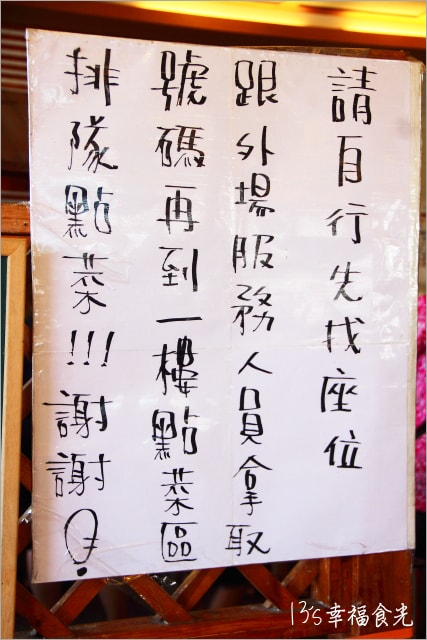 請自行先找座位
跟外場服務人員拿取
號碼再到一樓點菜區
排隊點菜!!!謝謝!
13's幸福食光